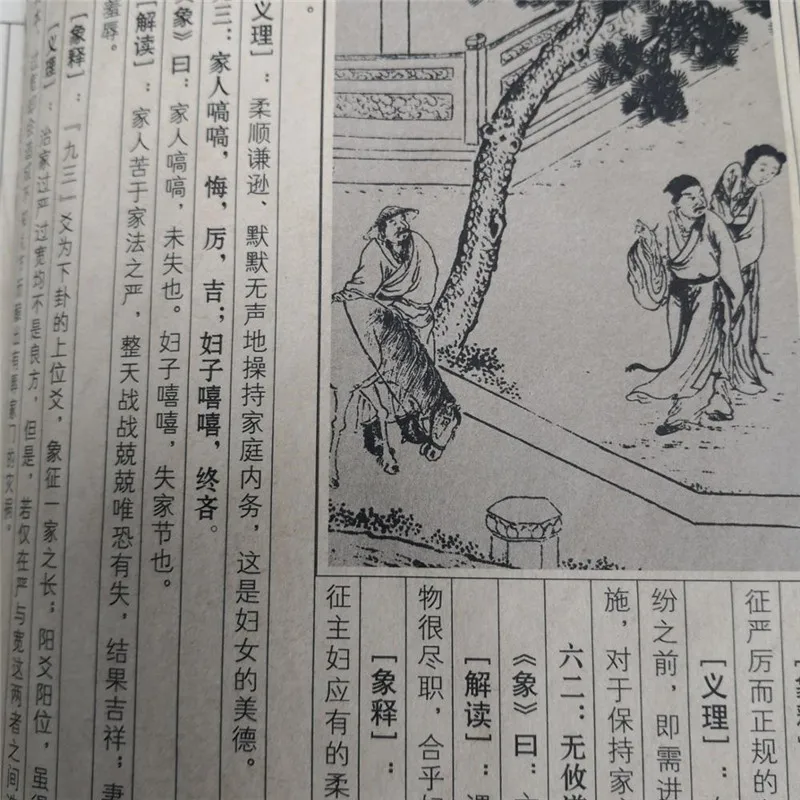 征严厉而正规的
[义理]：
纷之前，即需进
施，对于保持家
六二：无攸
《象》曰：
[解读]：
物很尽职，合乎
[象释]：
征主妇应有的柔
义理]：柔顺谦逊、默默无声地操持家庭内务，这是妇女的美德。
三：家人嗃嗃，悔，厉，吉；妇子嘻嘻，终吝。
象》曰：家人嗃嗃，未失也。妇子嘻嘻，失家节也。
[解读]：家人苦于家法之严，整天战战兢兢唯恐有失，结果吉祥；妻
羞辱。
[象释]：『九三』爻为下卦的上位爻，象征一家之长；阳爻阳位，虽
[义理]：治家过严过宽均不是良方，但是，若仅在严与宽这两者之间